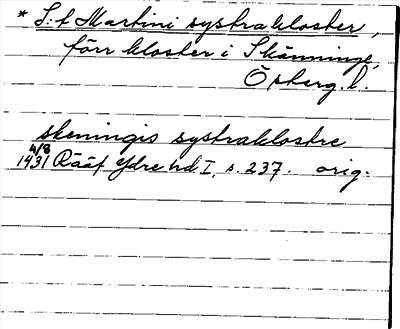 * S:t Martini systrakloster,
förr kloster i Skänninge,
Östergl.
skeningis systraklostre
4/8
1431 Rääf Ydre hd I, s. 237. orig.